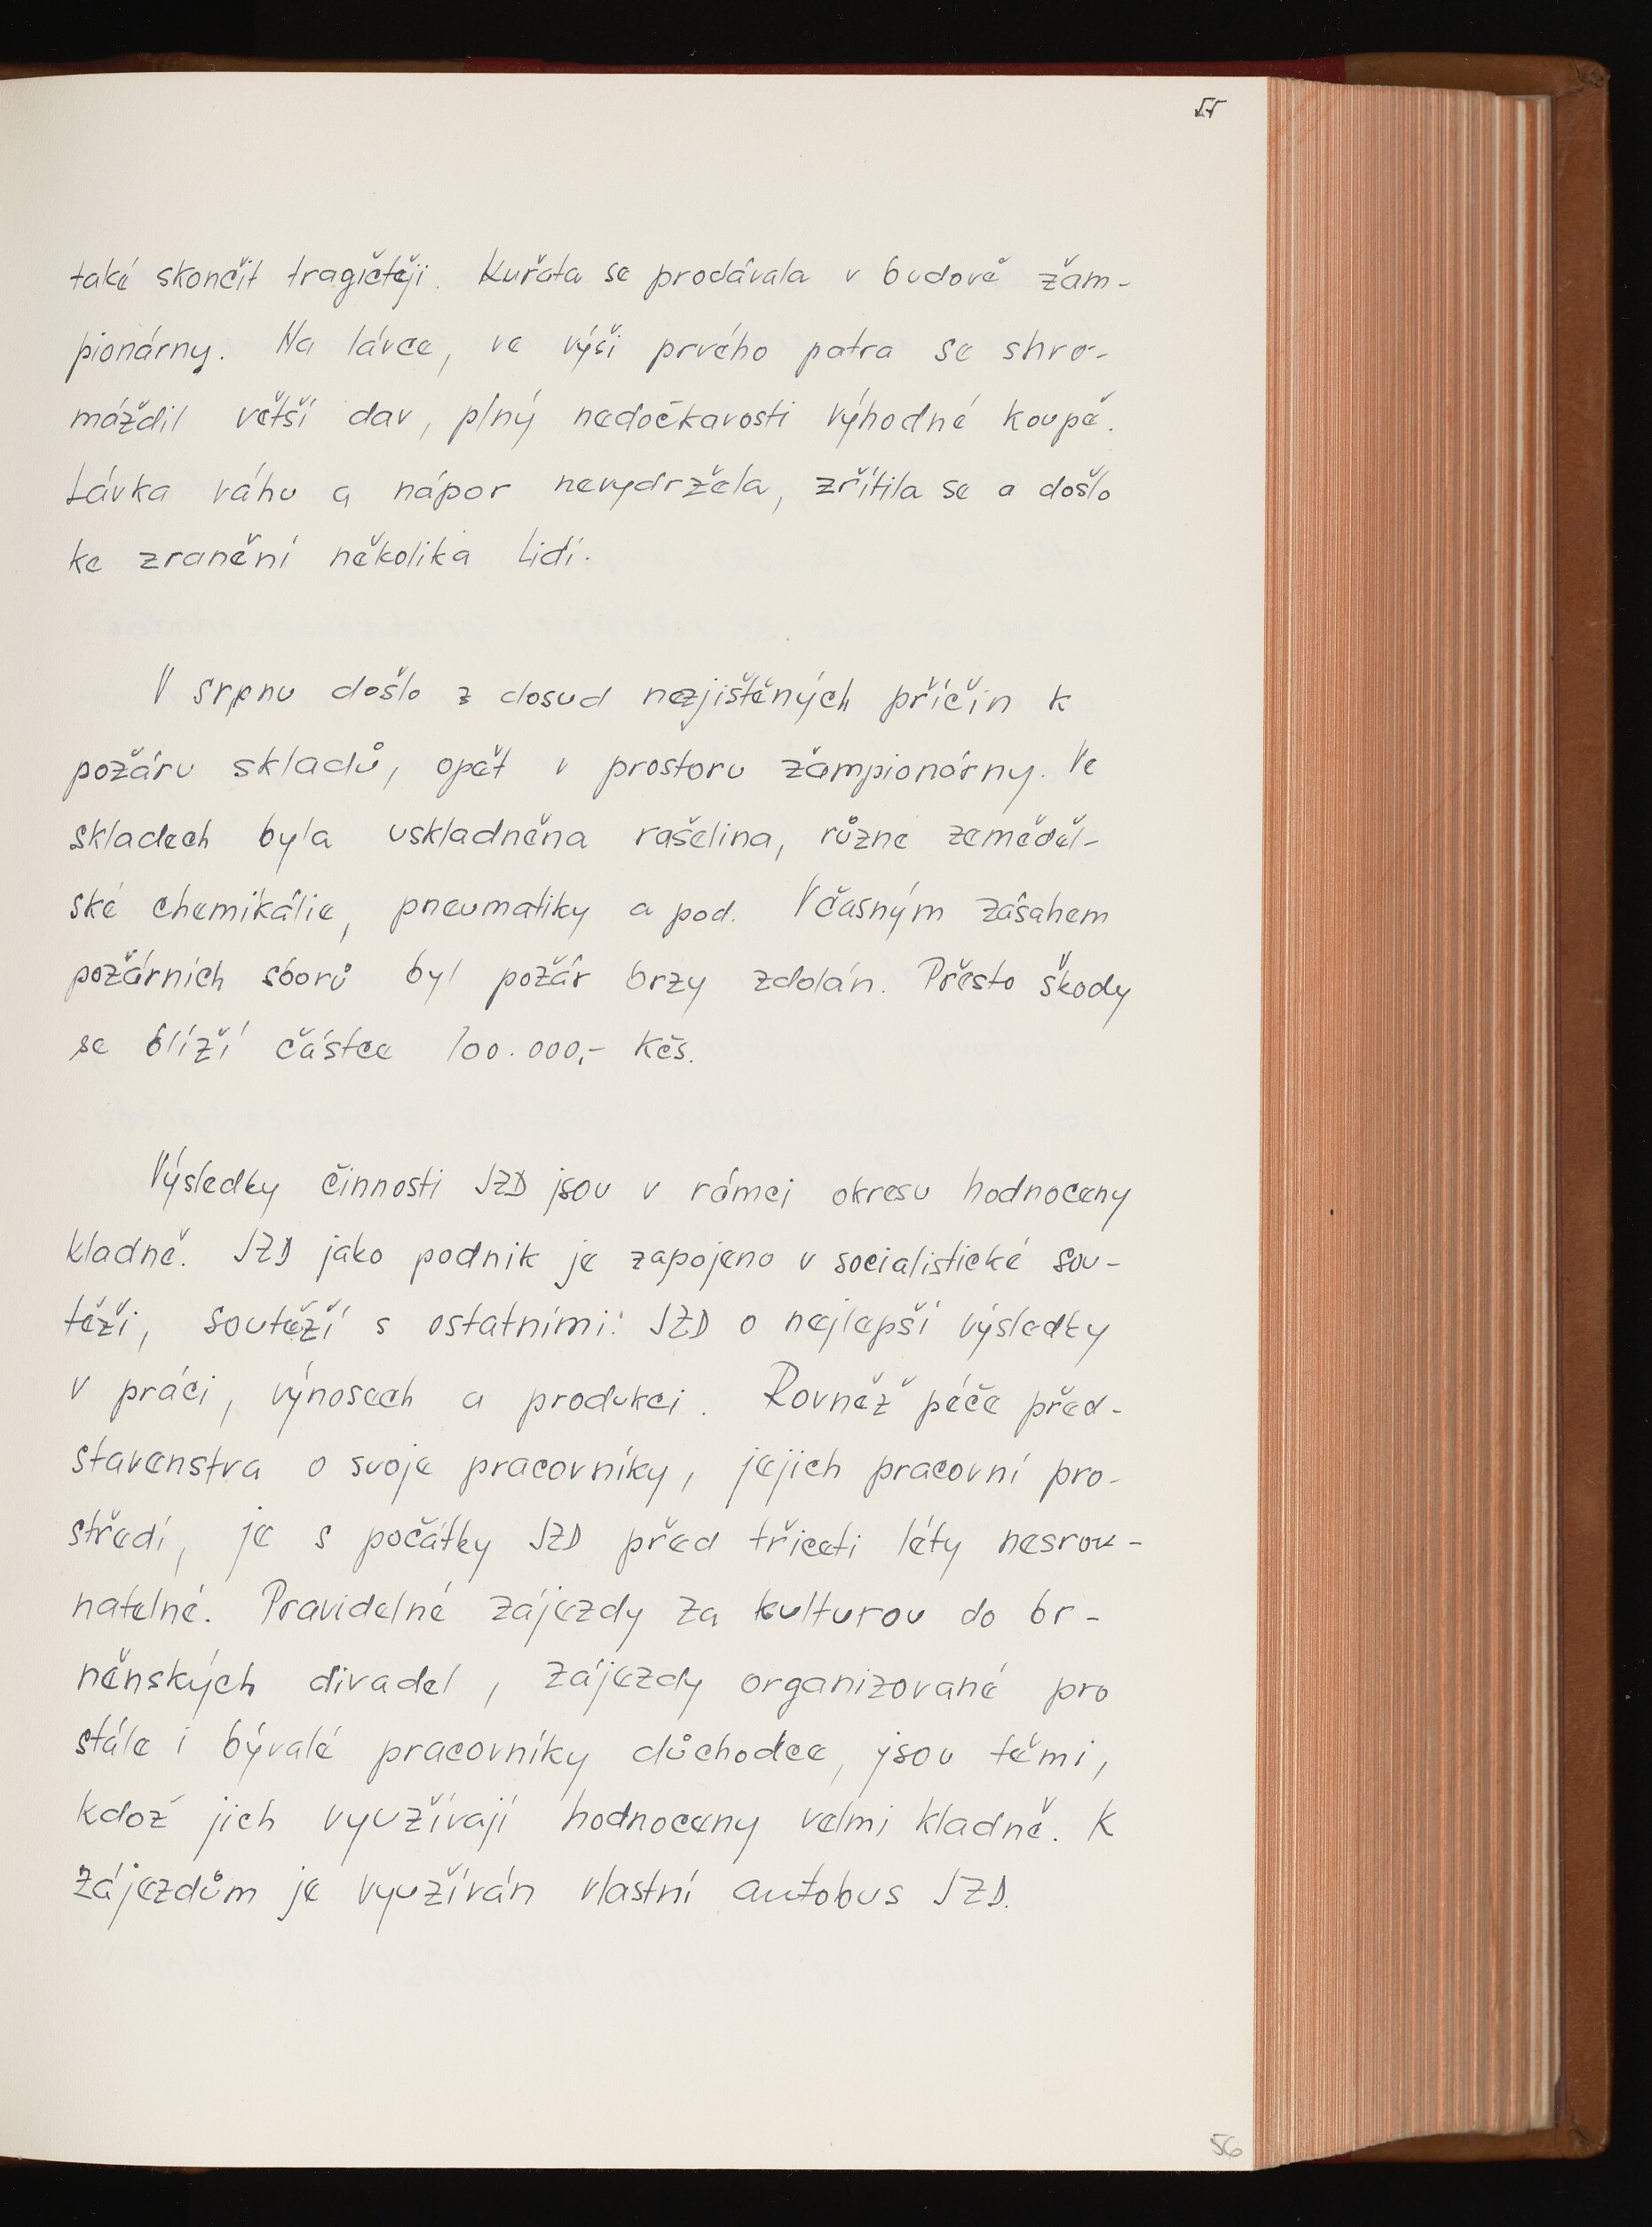 55
také skončit tragičtěji. Kuřata se prodávala v budově žam-
pionárny. Na lávce, ve výši prvého patra se shro-
máždil větší dav, plný nedočkavosti výhodné koupě.
Lávka váhu a nápor nevydržela, zřítila se a došlo
ke zranění několika lidí.
V srpnu došlo z dosud nezjištěných příčin k
požáru skladů, opět v prostoru žampionárny. Ve
skladech byla uskladněna rašelina, různe zeměděl-
ské chemikálie, pneumatiky a pod. Včasným zásahem
požárních sborů byl požár brzy zdolán. Přesto škody
se blíží částce 100.000,- Kčs.
Výsledky činnosti JZD jsou v rámci okresu hodnoceny
kladně. JZD jako podnik je zapojeno v socialistické sou-
těži, soutěží s ostatními JZD o nejlepší výsledky
v práci, výnosech a produkci. Rovněž péče před-
stavenstva o svoje pracovníky, jejich pracovní pro-
středí, je s počátky JZD před třiceti léty nesrov-
natelné. Pravidelné zájezdy za kulturou do br-
něnských divadel, zájezdy organizované pro
stále i bývalé pracovníky důchodce, jsou těmi,
kdož jich využívají hodnoceny velmi kladně. K
zájezdům je využíván vlastní autobus JZD.
56